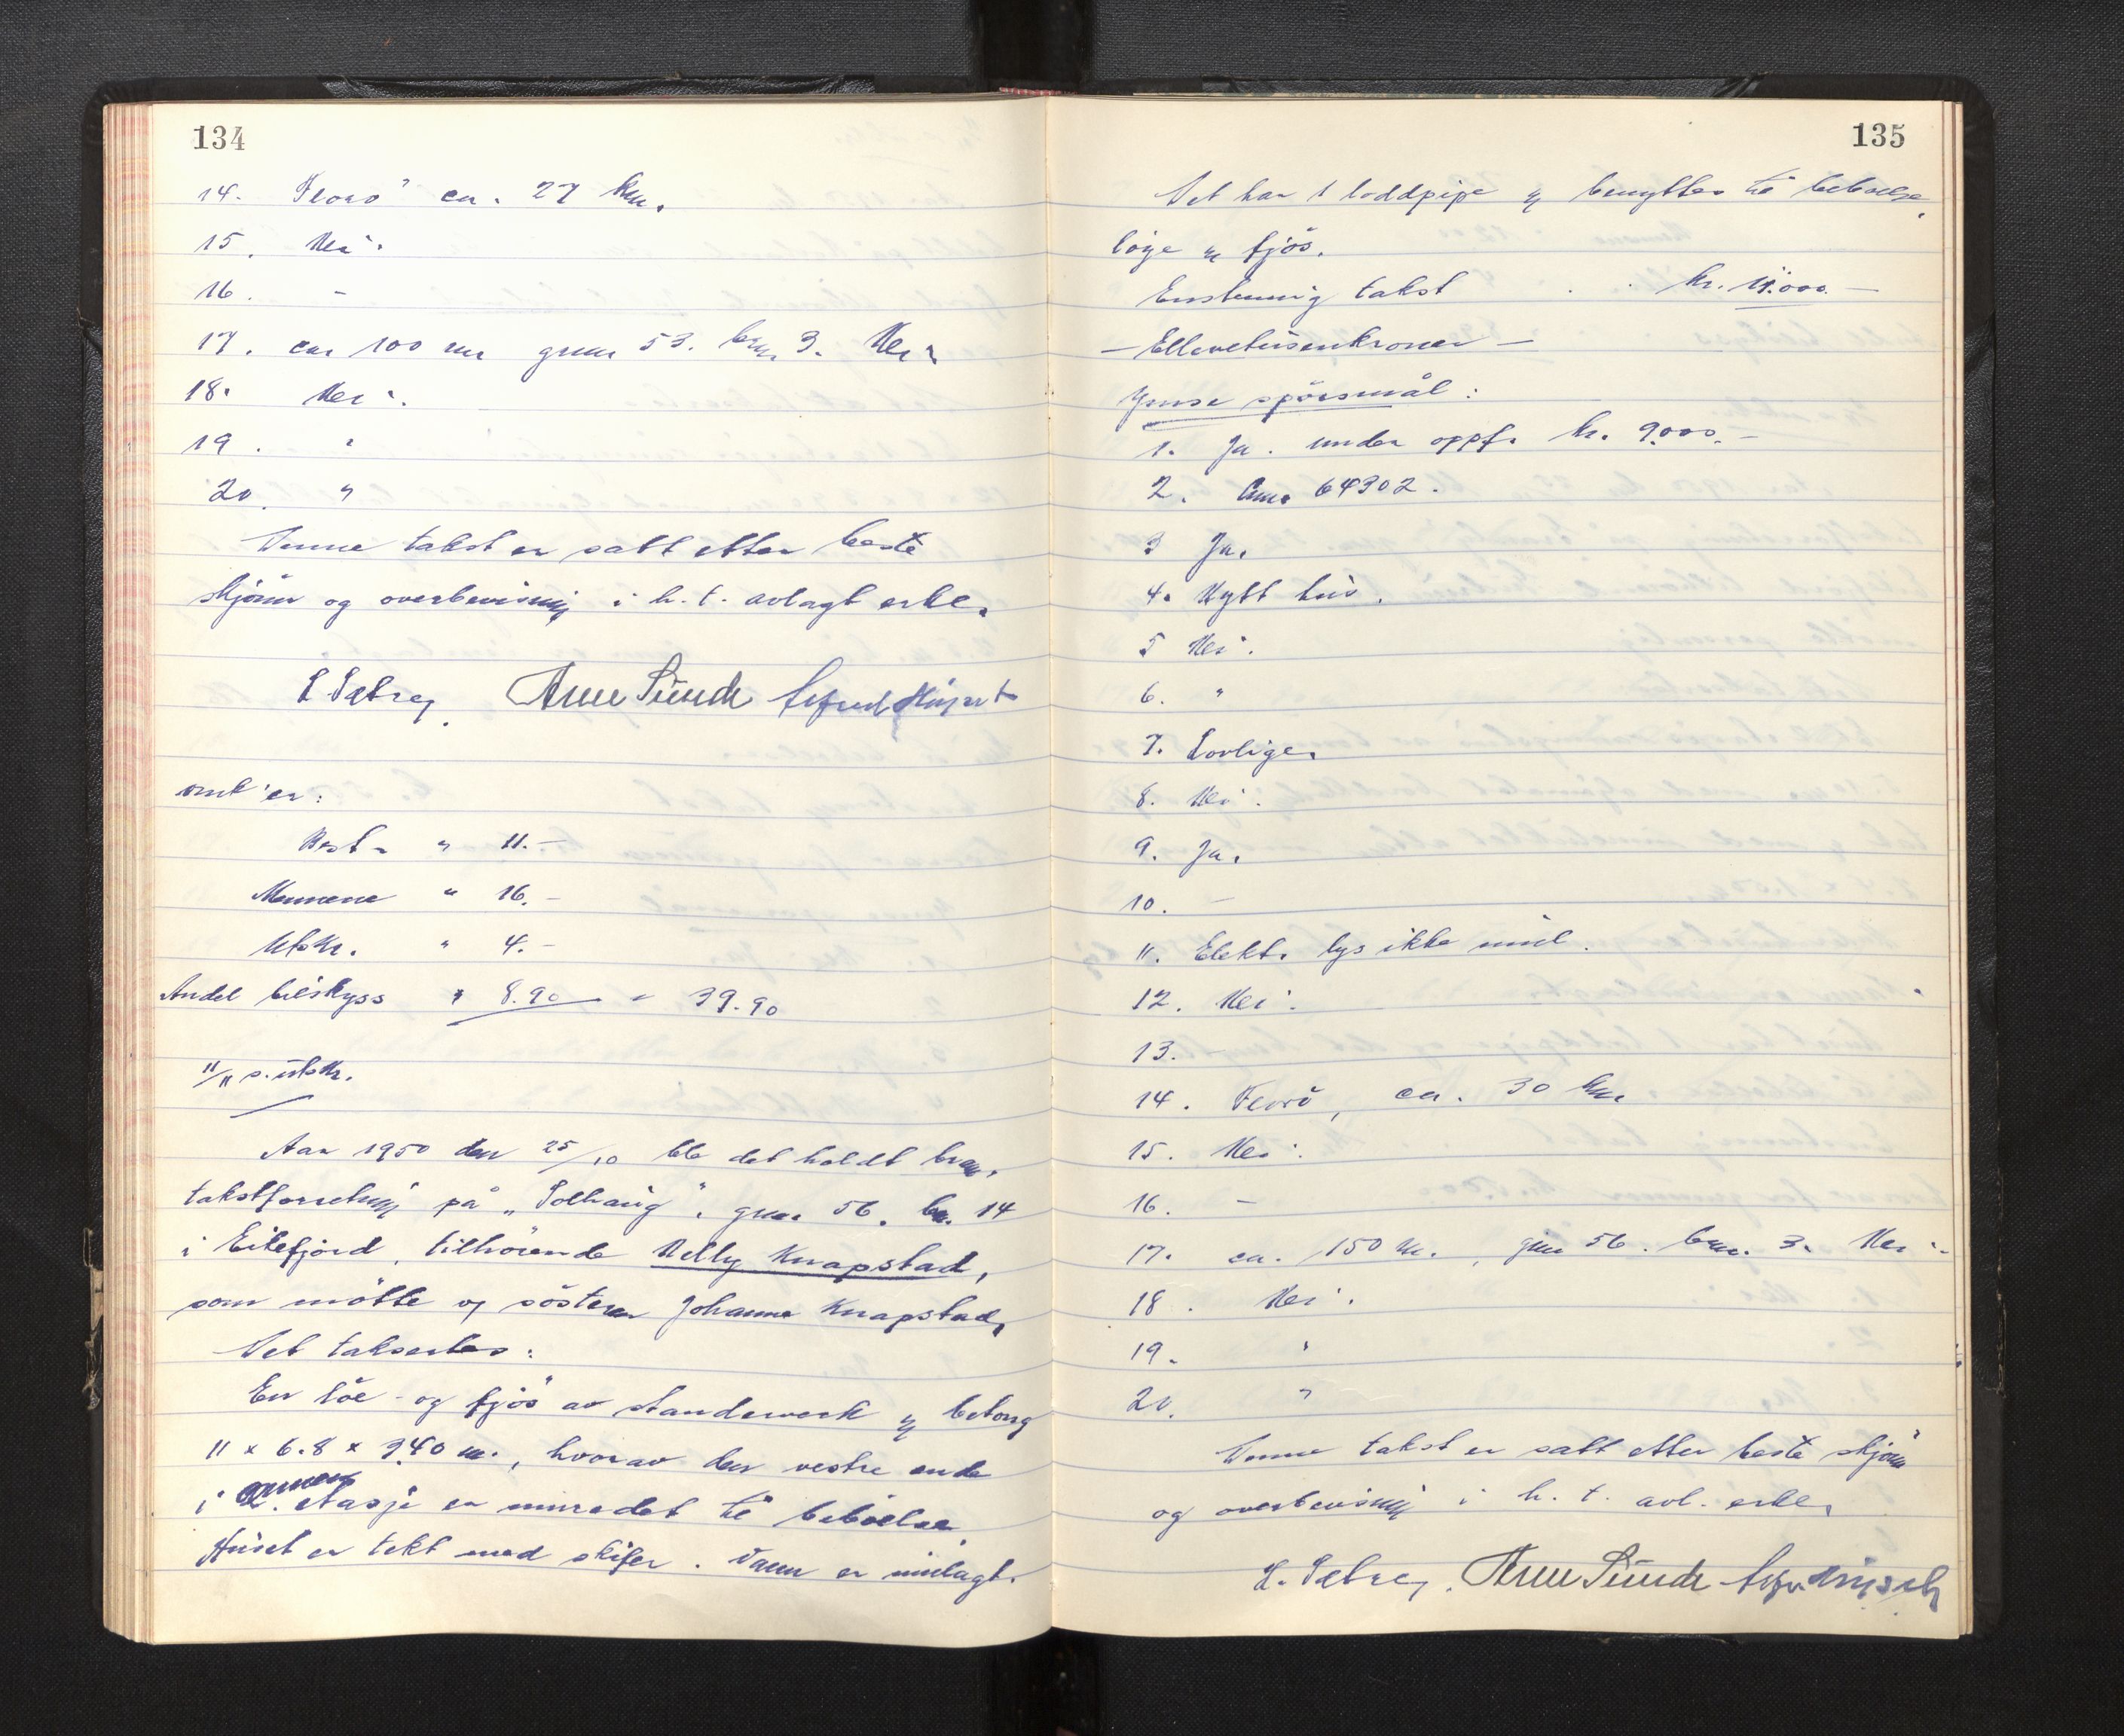 134
14. Florø ca. 27 km.
15. Nei.
16. -
17. ca 100 m gnr 53. bnr. 3. Nei
18. Nei.
19. "
20. "
Denne takst er satt etter beste
skjønn og overbevisning i h. t. avlagt ed.
L. Sætrey. Arne Sunde
omk'er:
Best. " 11.-
Mennene " 16.-
Utskr. " 4.-
Andel bilskyss " 8.90 = 39.90
11/11 s. utskr.
Aar 1950 den 25/10 ble det holdt brann,
takstforretning på „Solhaug", gnr. 56. br. 14
i Eikefjord, tilhørende Nelly Knapstad,
som møtte og søsteren Johanna Knapstad,
Det takseres:
En løe- og fjøs av standsverk og betong
11 x 6.8 x 3.40 m., hvorav den vestre ende
i annen etasje er innredet til beboelse.
Huset er tekt med skifer. Vann er innlagt.
135
Det har 1 loddpipe og benyttes til beboelse,
løye og fjøs.
Enstemmig takst . . kr. 11.000.-
- Ellevetusenkroner -
Ymse spørsmål:
1. Ja. under oppf. kr. 9.000.-
2. Anr. 64302.
3 Ja.
4. Nytt hus.
5 Nei.
6. "
7. Lovlige.
8. Nei.
9. Ja.
10. -
11. Elekt. lys ikke innl.
12. Nei.
13. -
14. Florø, ca. 30 km
15. Nei.
16. -
17. ca. 150 m., gnr 56. bnr. 3. Nei.
18. Nei.
19. "
20. "
Denne takst er satt etter beste skjønn
og overbevisning i h. t. avl. ed.
L. Sætrey. Arne Sunde